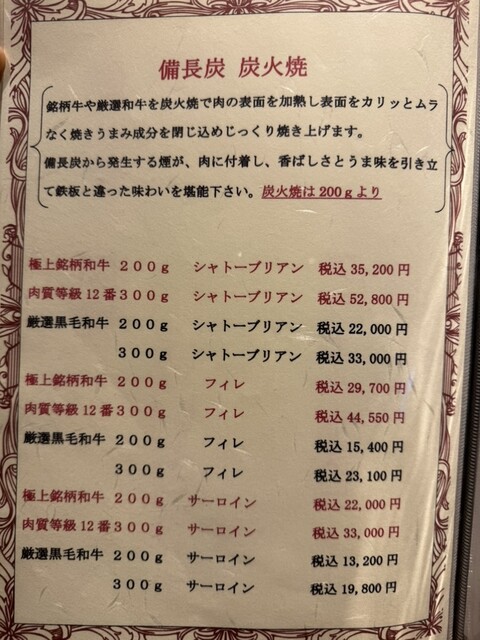 備長炭 炭火焼
銘柄牛や厳選和牛を炭火焼で肉の表面を加熱し表面をカリッとムラ
なく焼きうまみ成分を閉じ込めじっくり焼き上げます。
備長炭から発生する煙が、肉に付着し、香ばしさとうま味を引き立
て鉄板と違った味わいを堪能下さい。炭火焼は200gより
極上銘柄和牛 200g シャトーブリアン 税込 35,200 円
肉質等級12番300g シャトーブリアン 税込 52,800 円
厳選黒毛和牛 200g シャトーブリアン 税込 22,000 円
300g シャトーブリアン 税込 33,000 円
極上銘柄和牛 200g フィレ 税込 29,700 円
肉質等級12番300g フィレ 税込 44,550 円
厳選黒毛和牛 200g フィレ 税込 15,400 円
300g フィレ 税込 23,100 円
極上銘柄和牛 200g サーロイン 税込 22,000 円
肉質等級12番300g サーロイン 税込 33,000 円
厳選黒毛和牛 200g サーロイン 税込 13,200 円
300g サーロイン 税込 19,800 円